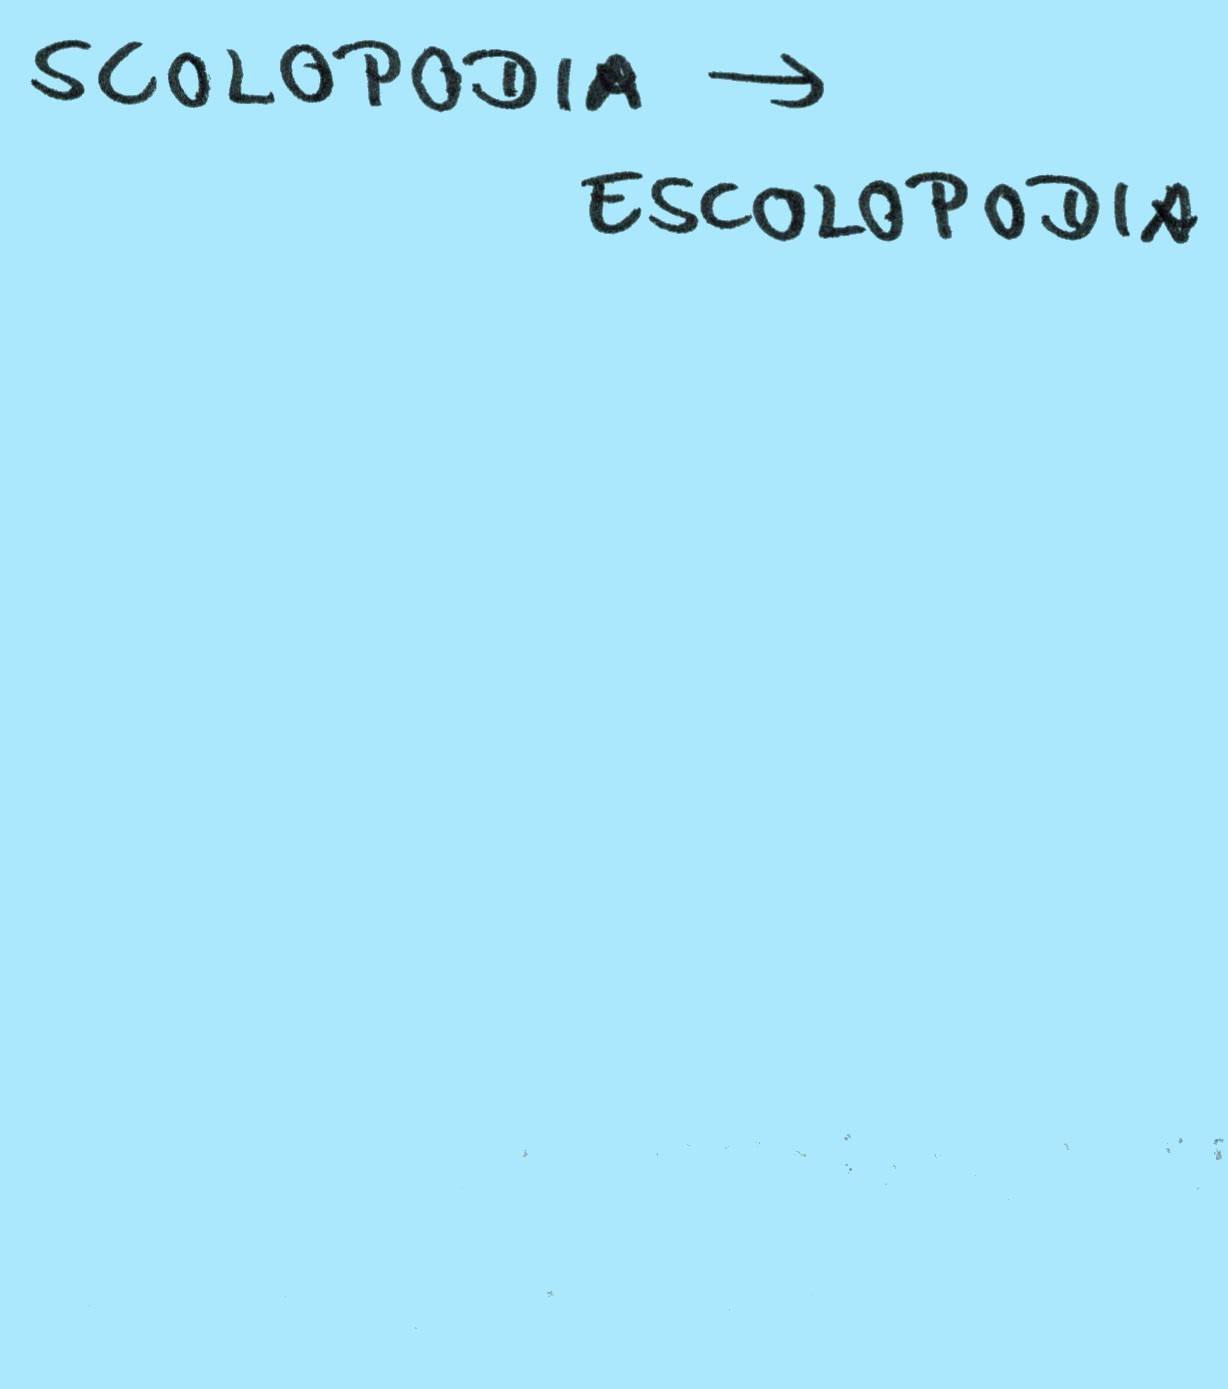 SCOLOPODIA →
ESCOLOPODIA